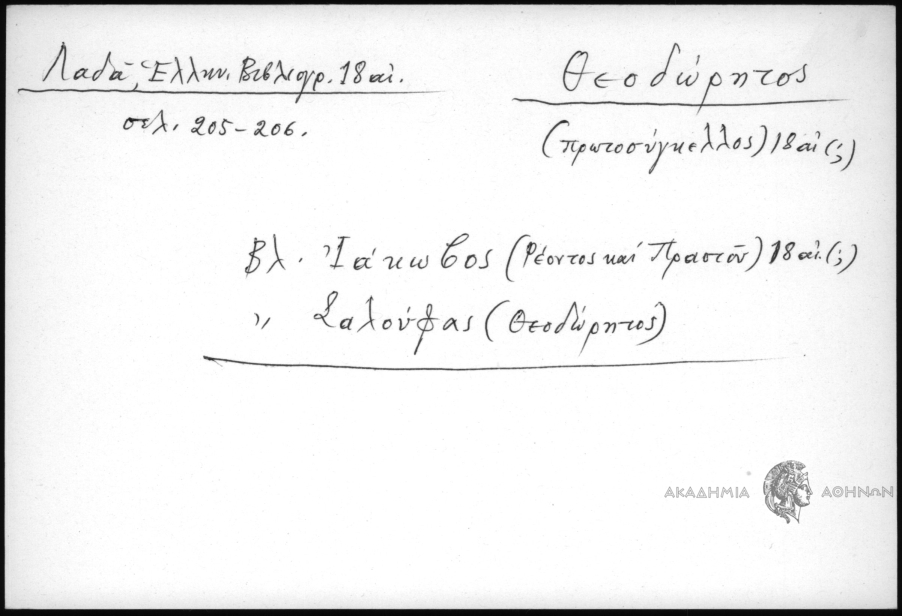 Λαδᾶ, Ἑλλην. Βιβλιογρ. 18 αἰ.
σελ. 205-206.
Θεοδώρητος
(πρωτοσύγκελλος) 18 αἰ (;)
Βλ. Ἰάκωβος (Ρέοντος καί Πραστοῦ) 18 αἰ. (;)
" Σαλούφας (Θεοδώρητος)
ΑΚΑΔΗΜΙΑ ΑΘΗΝΩΝ